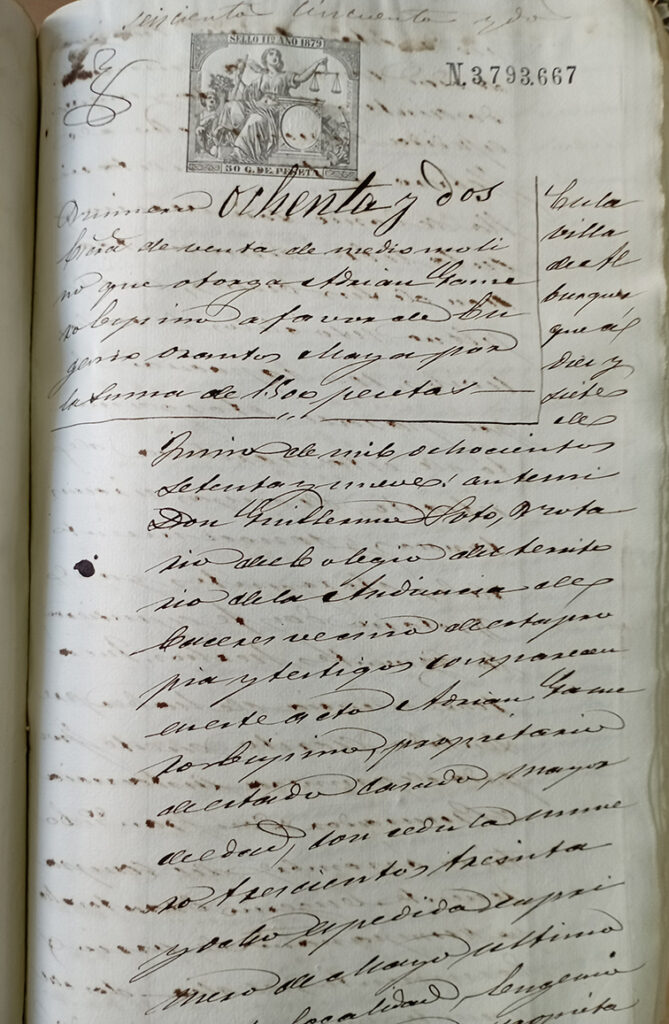 seiscientos cincuenta y dos
SELLO 11º AÑO 1879
N. 3.793.667
50 C. DE PESETA
Numero Ochenta y dos
de venta de medio moli
no que otorga Adrian Game
ro Cupino a favor de Eu
genio Orantos Maya por
la suma de 1500 pesetas
En la
villa
de Al
burquer
que á
diez y
siete
de
Junio de mil ochocientos
setenta y nueve: ante mi
Don Guillermo Soto, Nota
rio del Colegio del territo
rio de la Audiencia de
Caceres vecino de esta pro
pia y testigos comparecen
en este acto Adrian Game
ro Cupino, propietario
de estado casado, mayor
de edad, con cedula nume
ro trescientos treinta
y ocho expedida en pri
mero de Mayo ultimo
localidad, Eugenio